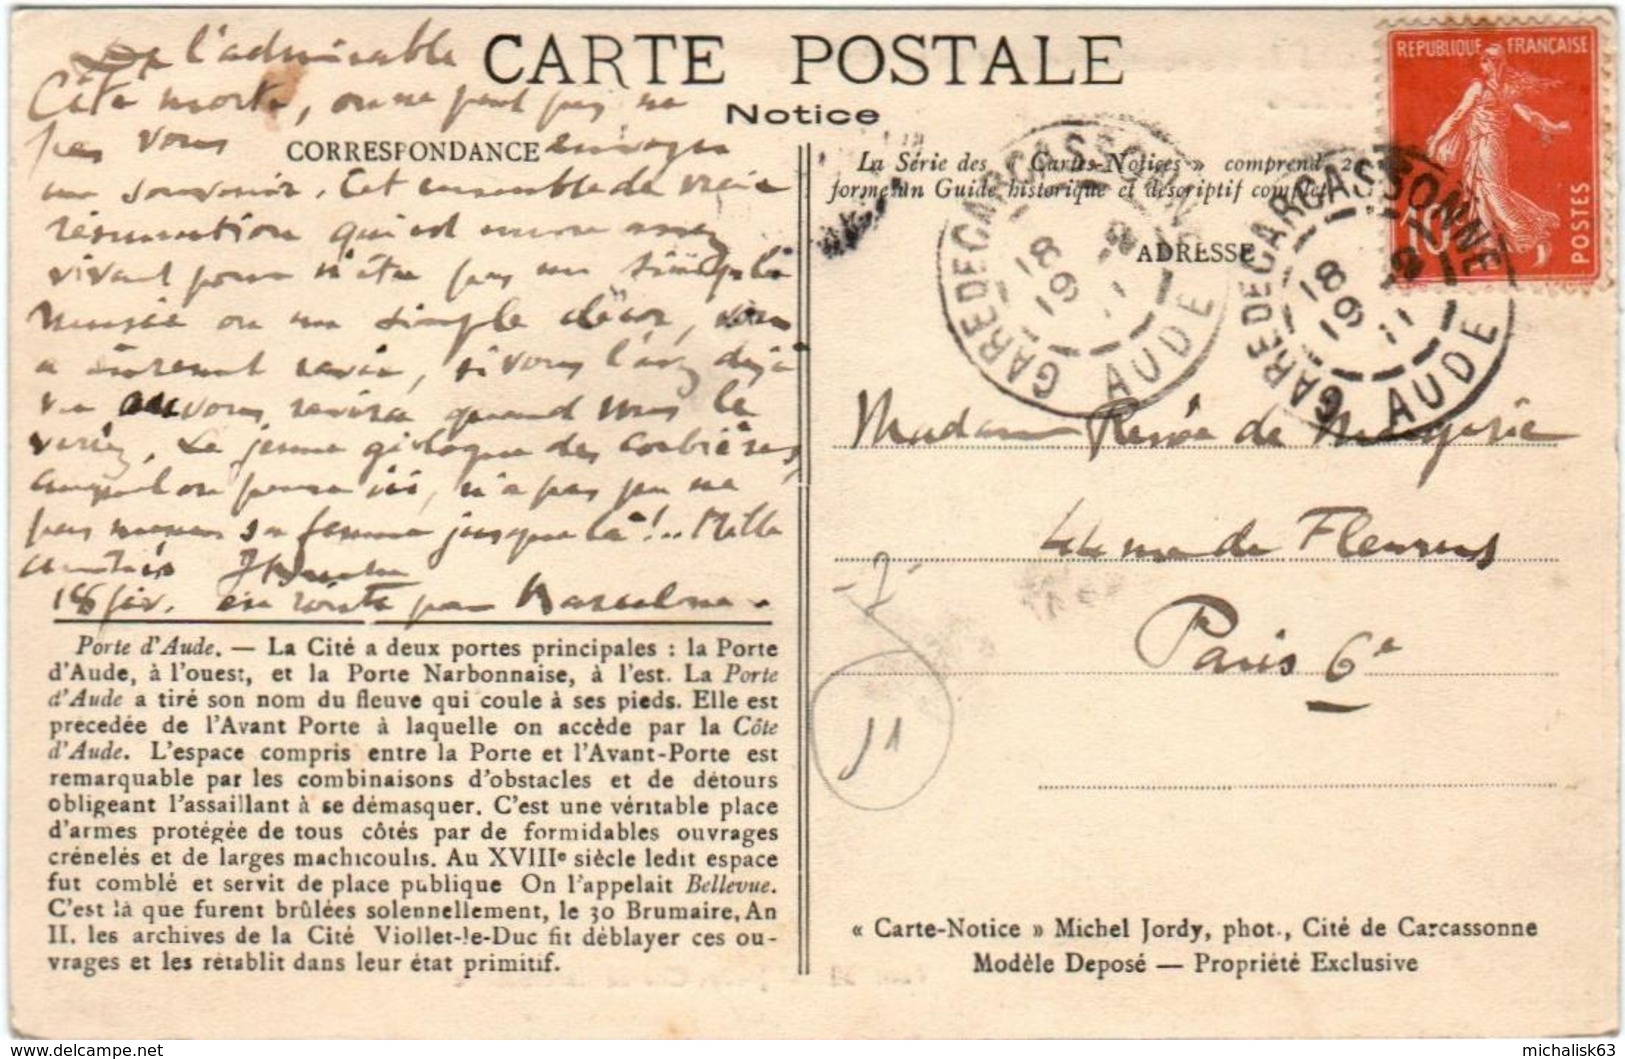 CARTE POSTALE
Notice
CORRESPONDANCE
De l'admirable
Cité morte, on ne peut pas ne
pas vous envoyer
un souvenir. Cet ensemble de vraie
résurrection qui est encore assez
vivant pour n'être pas un simple
musée ou un simple décor, vous
a sûrement ravie, si vous l'avez déjà
vu ou vous ravira quand vous le
verrez. Le jeune géologue des Corbières,
auquel on pense ici, n'a pas pu ne
pas mener sa femme jusque là !.. Mille
amitiés
18 fév. en route pour Barcelone.
Porte d'Aude. — La Cité a deux portes principales : la Porte
d'Aude, à l'ouest, et la Porte Narbonnaise, à l'est. La Porte
d'Aude a tiré son nom du fleuve qui coule à ses pieds. Elle est
precedée de l'Avant Porte à laquelle on accède par la Côte
d'Aude. L'espace compris entre la Porte et l'Avant-Porte est
remarquable par les combinaisons d'obstacles et de détours
obligeant l'assaillant à se démasquer. C'est une véritable place
d'armes protégée de tous côtés par de formidables ouvrages
crénelés et de larges machicoulis. Au XVIIIe siècle ledit espace
fut comblé et servit de place publique On l'appelait Bellevue.
C'est là que furent brûlées solennellement, le 30 Brumaire, An
II. les archives de la Cité Viollet-le-Duc fit déblayer ces ou-
vrages et les rétablit dans leur état primitif.
La Série des « Cartes-Notices » comprend
forme un Guide historique et descriptif complet
ADRESSE
REPUBLIQUE FRANÇAISE
10
POSTES
GARE DE CARCASSONNE
18 2
19 11
AUDE
GARE DE CARCASSONNE
18 2
19 11
AUDE
Madame Renée de Margerie
44 rue de Fleurus
Paris 6e
11
« Carte-Notice » Michel Jordy, phot., Cité de Carcassonne
Modèle Deposé — Propriété Exclusive
www.delcampe.net
michalisk63